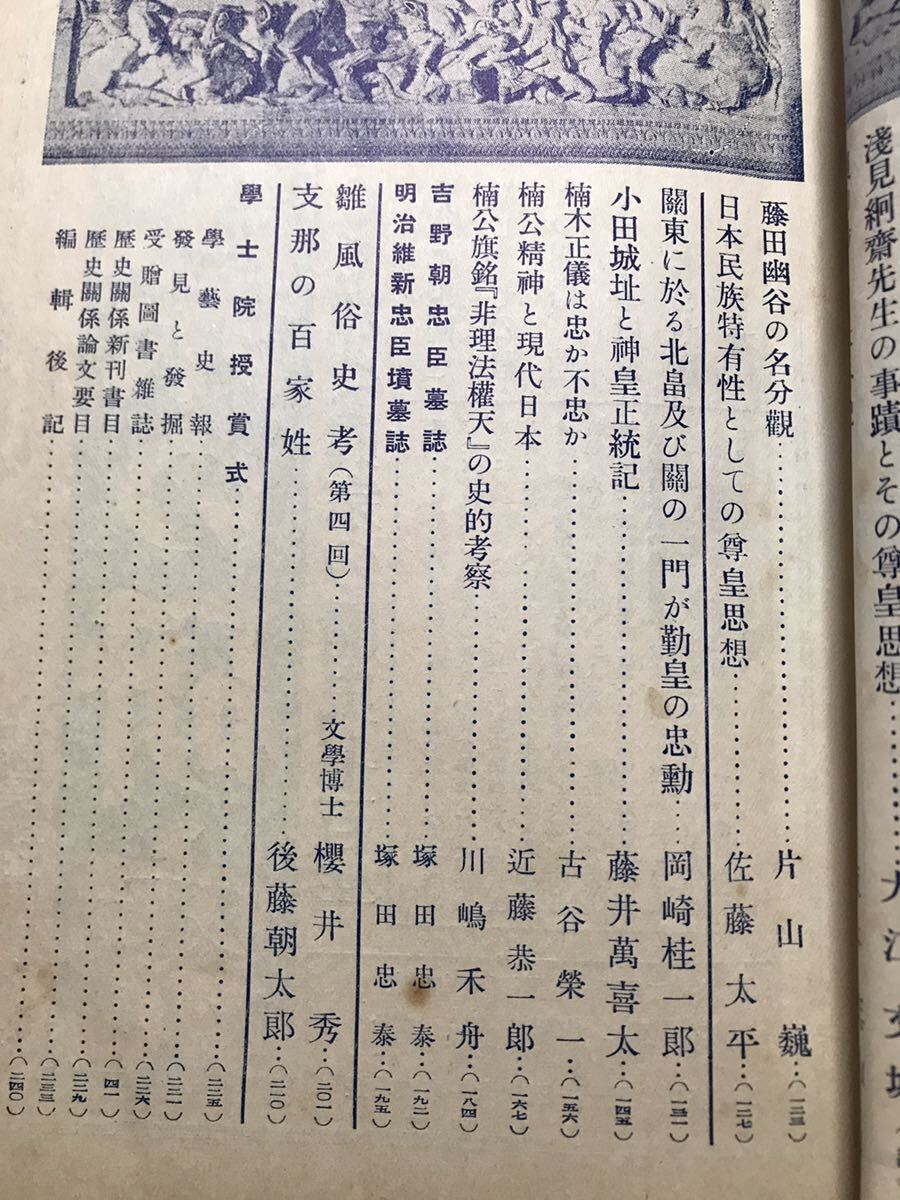 淺見絅齋先生の事蹟とその尊皇思想………大江
藤田幽谷の名分觀………片山巍…(一二三)
日本民族特有性としての尊皇思想………佐藤太平…(一二七)
關東に於る北畠及び關の一門が勤皇の忠勳…岡崎桂一郎…(一三一)
小田城址と神皇正統記………藤井萬喜太…(一四五)
楠木正儀は忠か不忠か………古谷榮一…(一五六)
楠公精神と現代日本………近藤恭一郎…(一六七)
楠公旗銘『非理法權天』の史的考察………川嶋禾舟…(一八四)
吉野朝忠臣墓誌………塚田忠泰…(一九二)
明治維新忠臣墳墓誌………塚田忠泰…(一九五)
雛風俗史考(第四回)………文學博士 櫻井秀…(二〇一)
支那の百家姓………後藤朝太郎…(二一〇)
學士院授賞式………(二二五)
學藝史報………(二二一)
發見と發掘………(二二六)
受贈圖書雜誌………(四一)
歷史關係新刊書目………(二二九)
歷史關係論文要目………(二三三)
編輯後記………(二四〇)